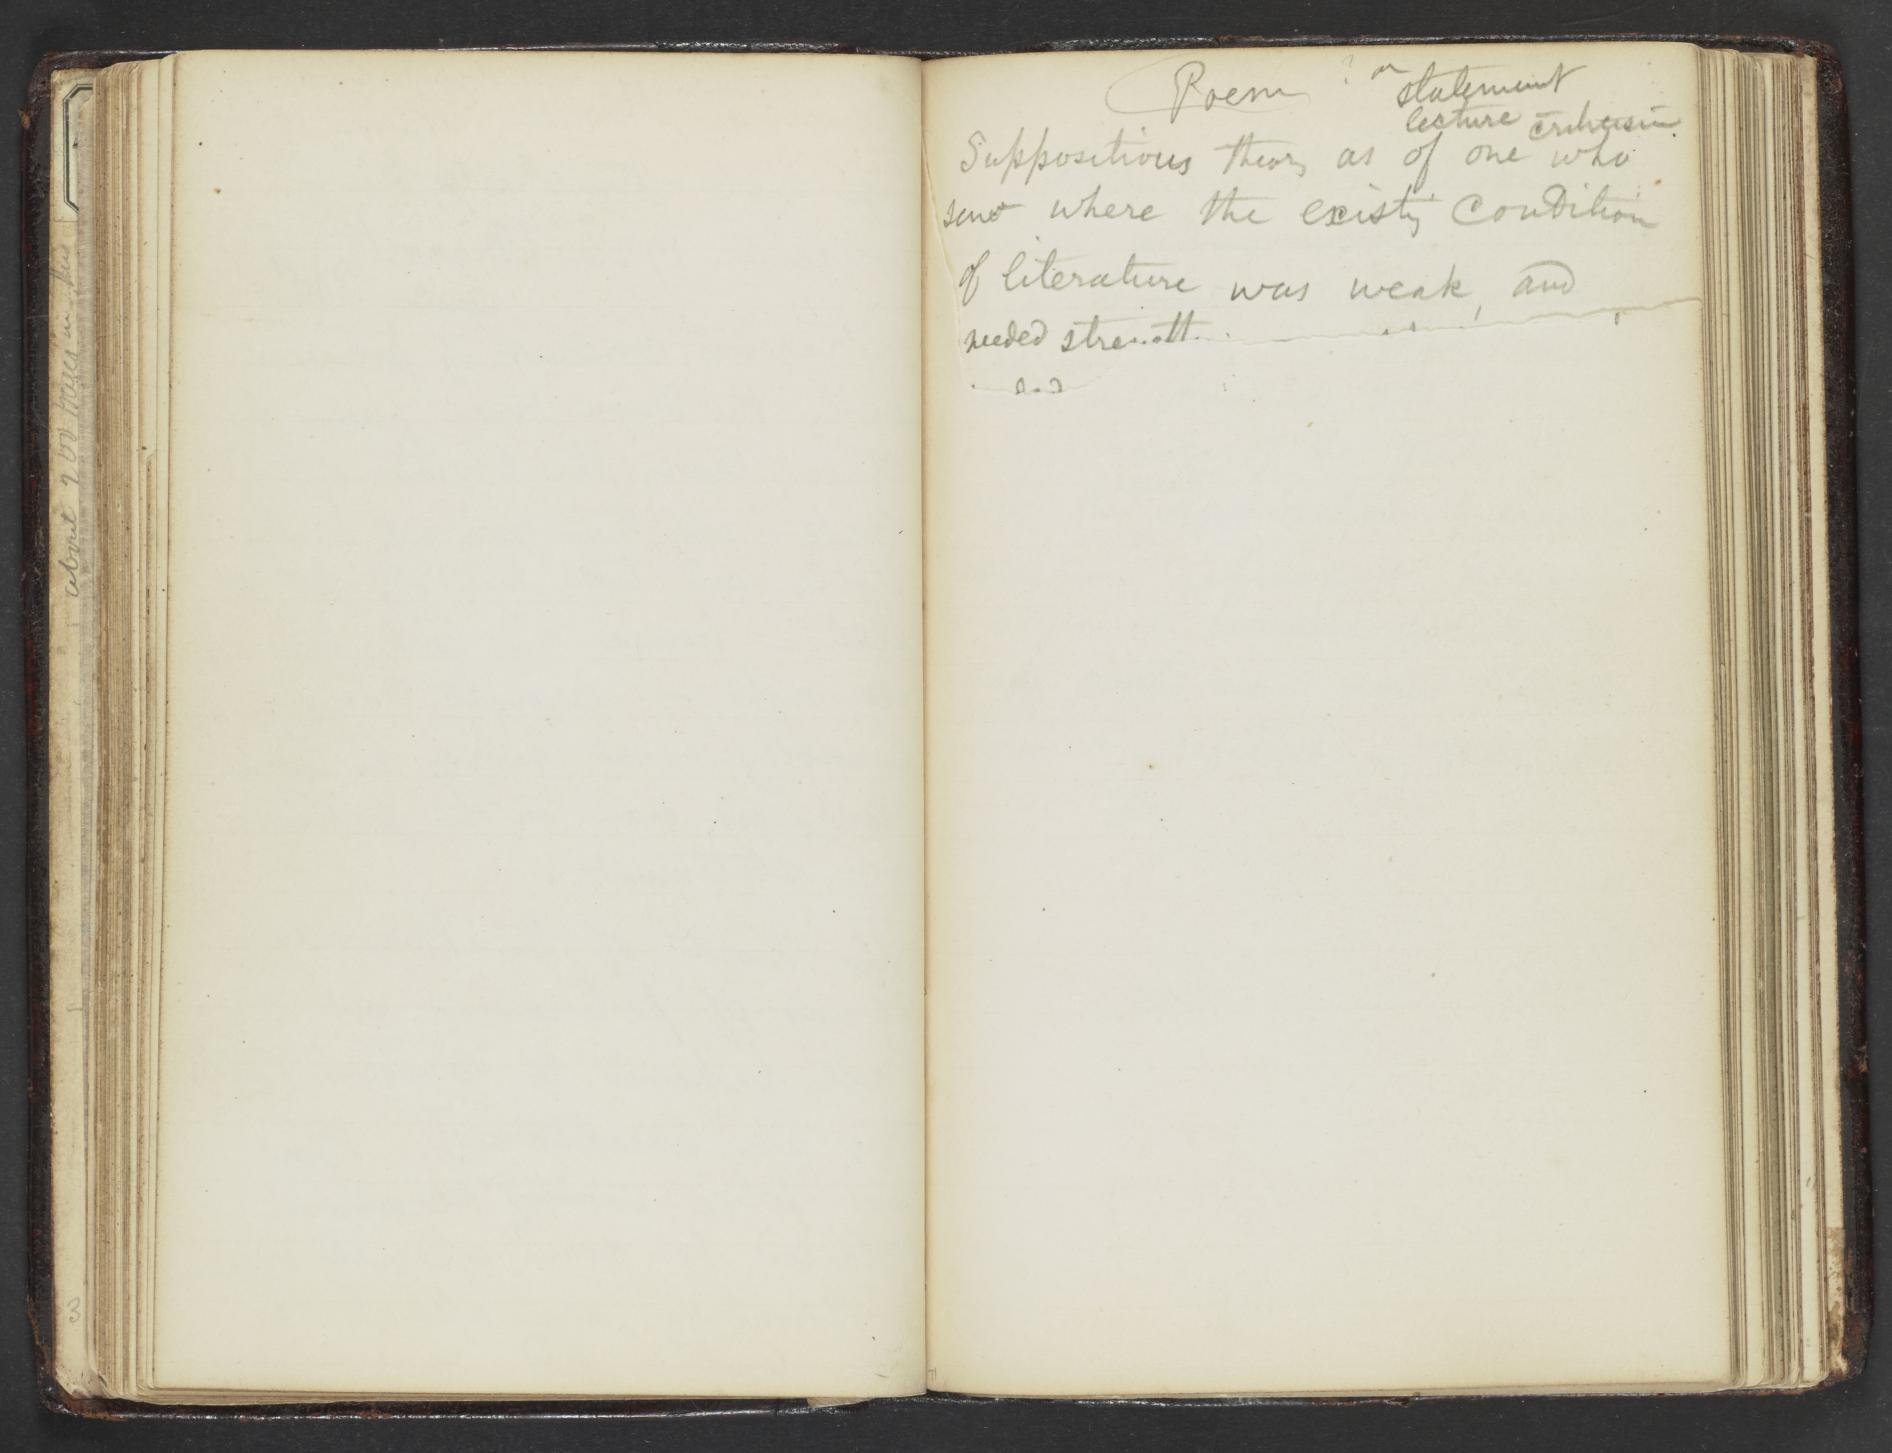 about 200 pages in this
3
Poem ? or statement
lecture criticism
Suppositious theory as of one who
where the existing condition
of literature was weak, and
needed strength